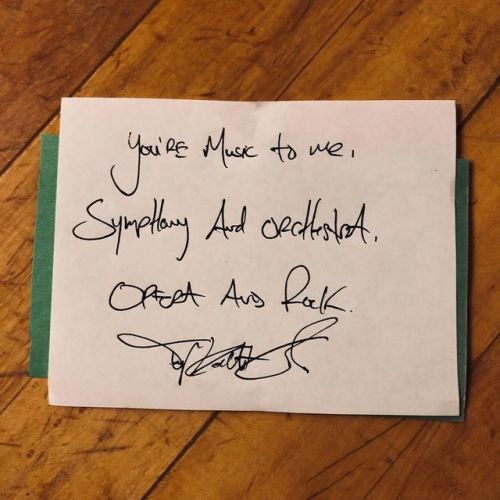 You're Music to me,
Symphony And orchestra.
OPERA AND Rock.